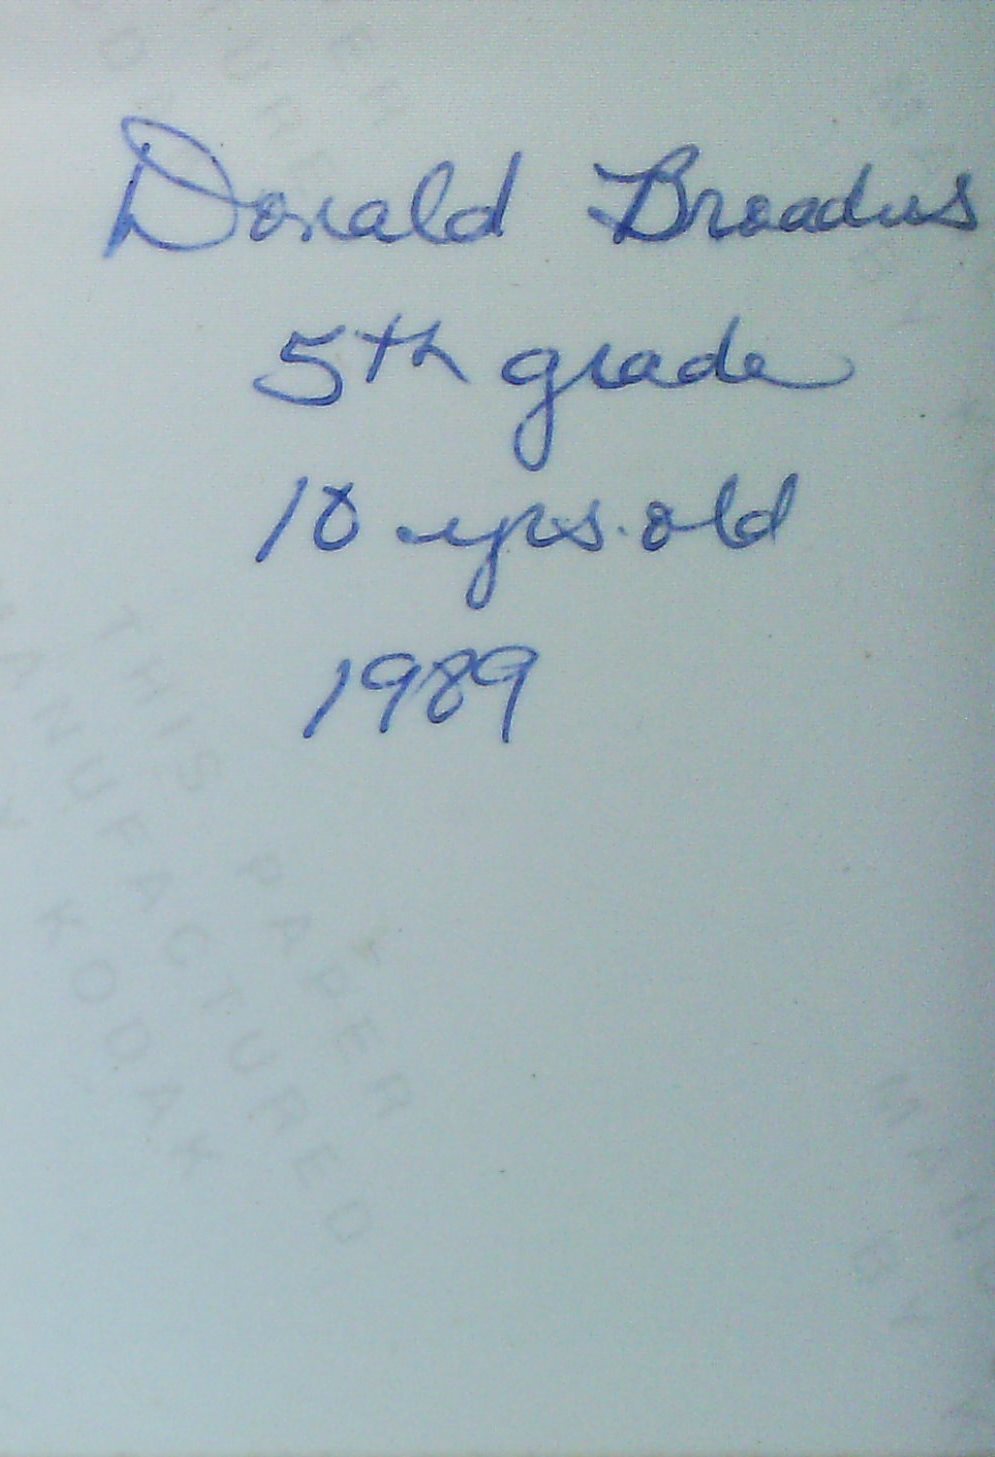 Donald Broadus
5th grade
10 yrs. old
1989
THIS PAPER
MANUFACTURED
BY KODAK